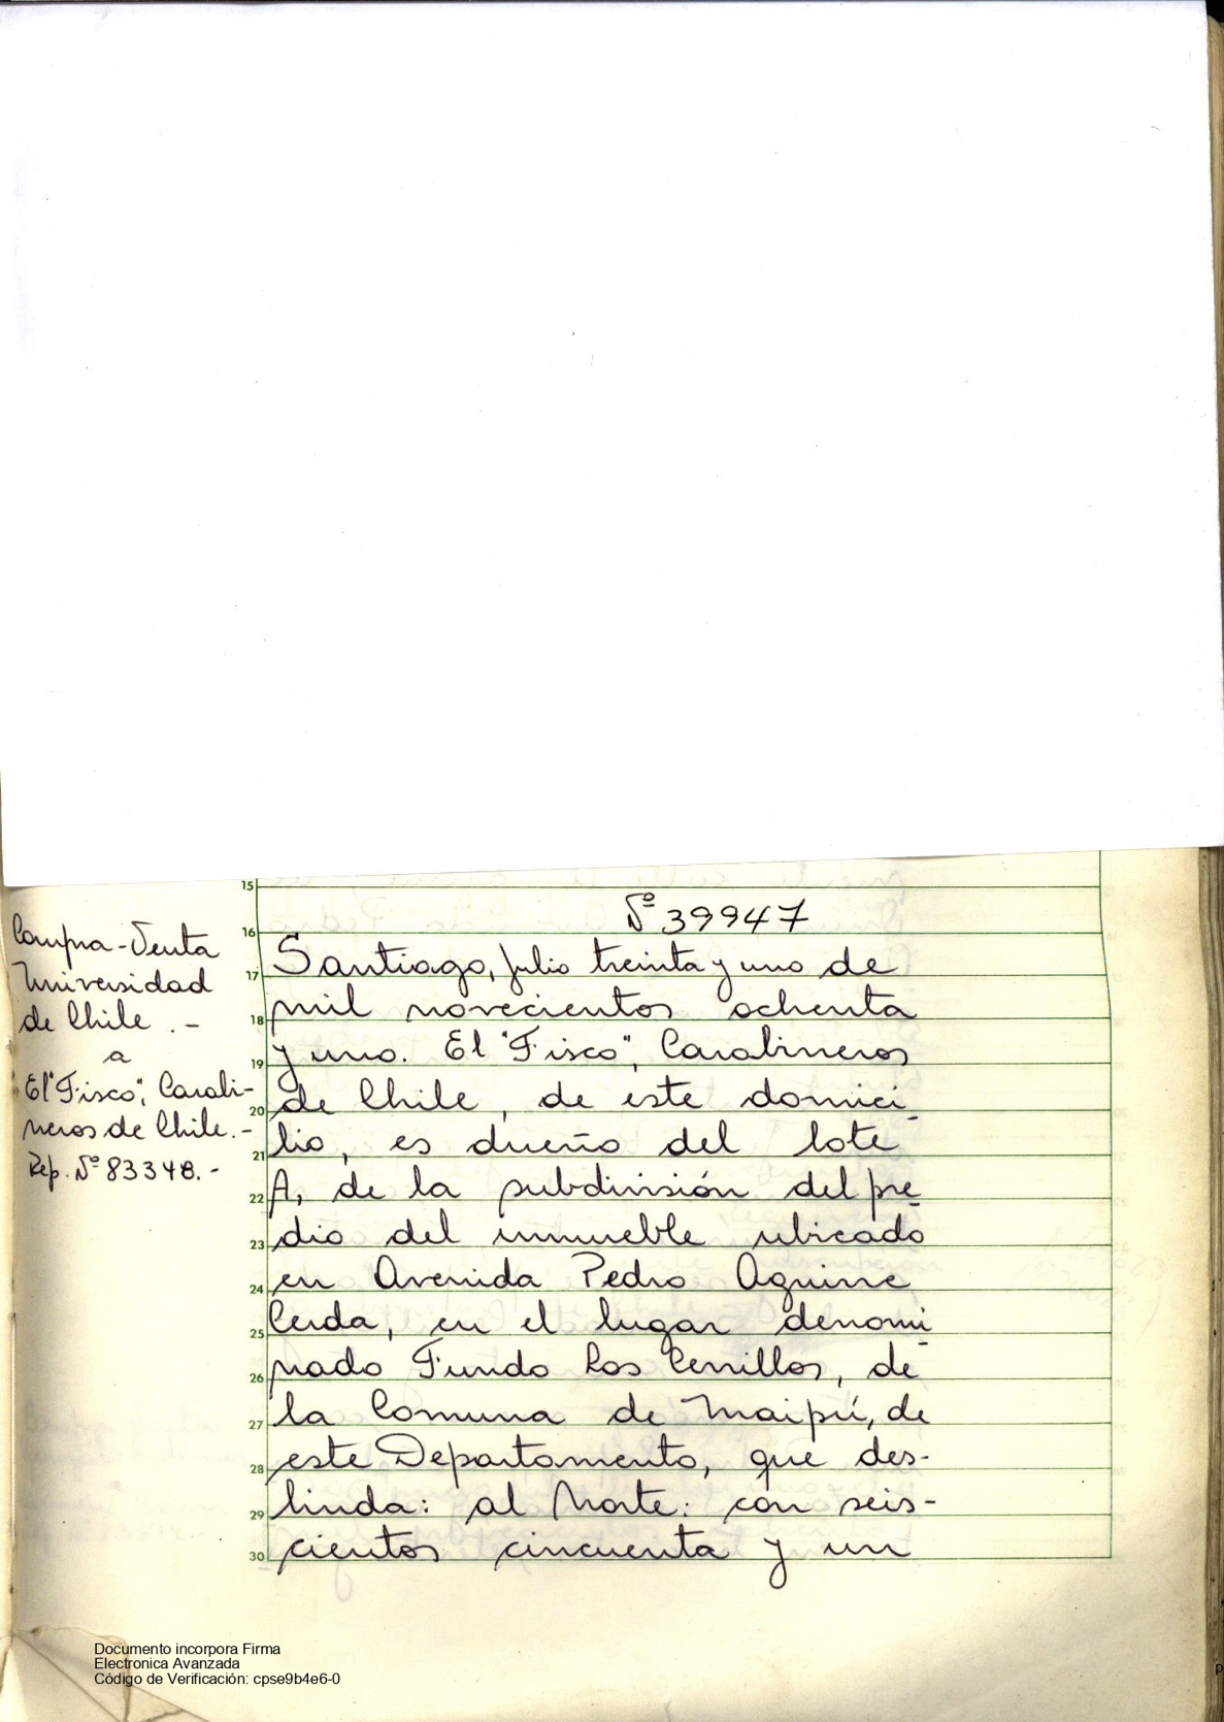 Nº 39947
Compra-Venta
Universidad
de Chile.-
a
El "Fisco", Carabi-
neros de Chile.-
Rep. Nº 83348.-
15
16
17 Santiago, julio treinta y uno de
18 mil novecientos ochenta
19 y uno. El "Fisco", Carabineros
20 de Chile, de este domici-
21 lio, es dueño del lote
22 A, de la subdivisión del pre-
23 dio del inmueble ubicado
24 en Avenida Pedro Aguirre
25 Cerda, en el lugar denomi-
26 nado Fundo Los Cerrillos, de
27 la Comuna de Maipú, de
28 este Departamento, que des-
29 linda: al Norte: con seis-
30 cientos cincuenta y un
Documento incorpora Firma
Electronica Avanzada
Código de Verificación: cpse9b4e6-0